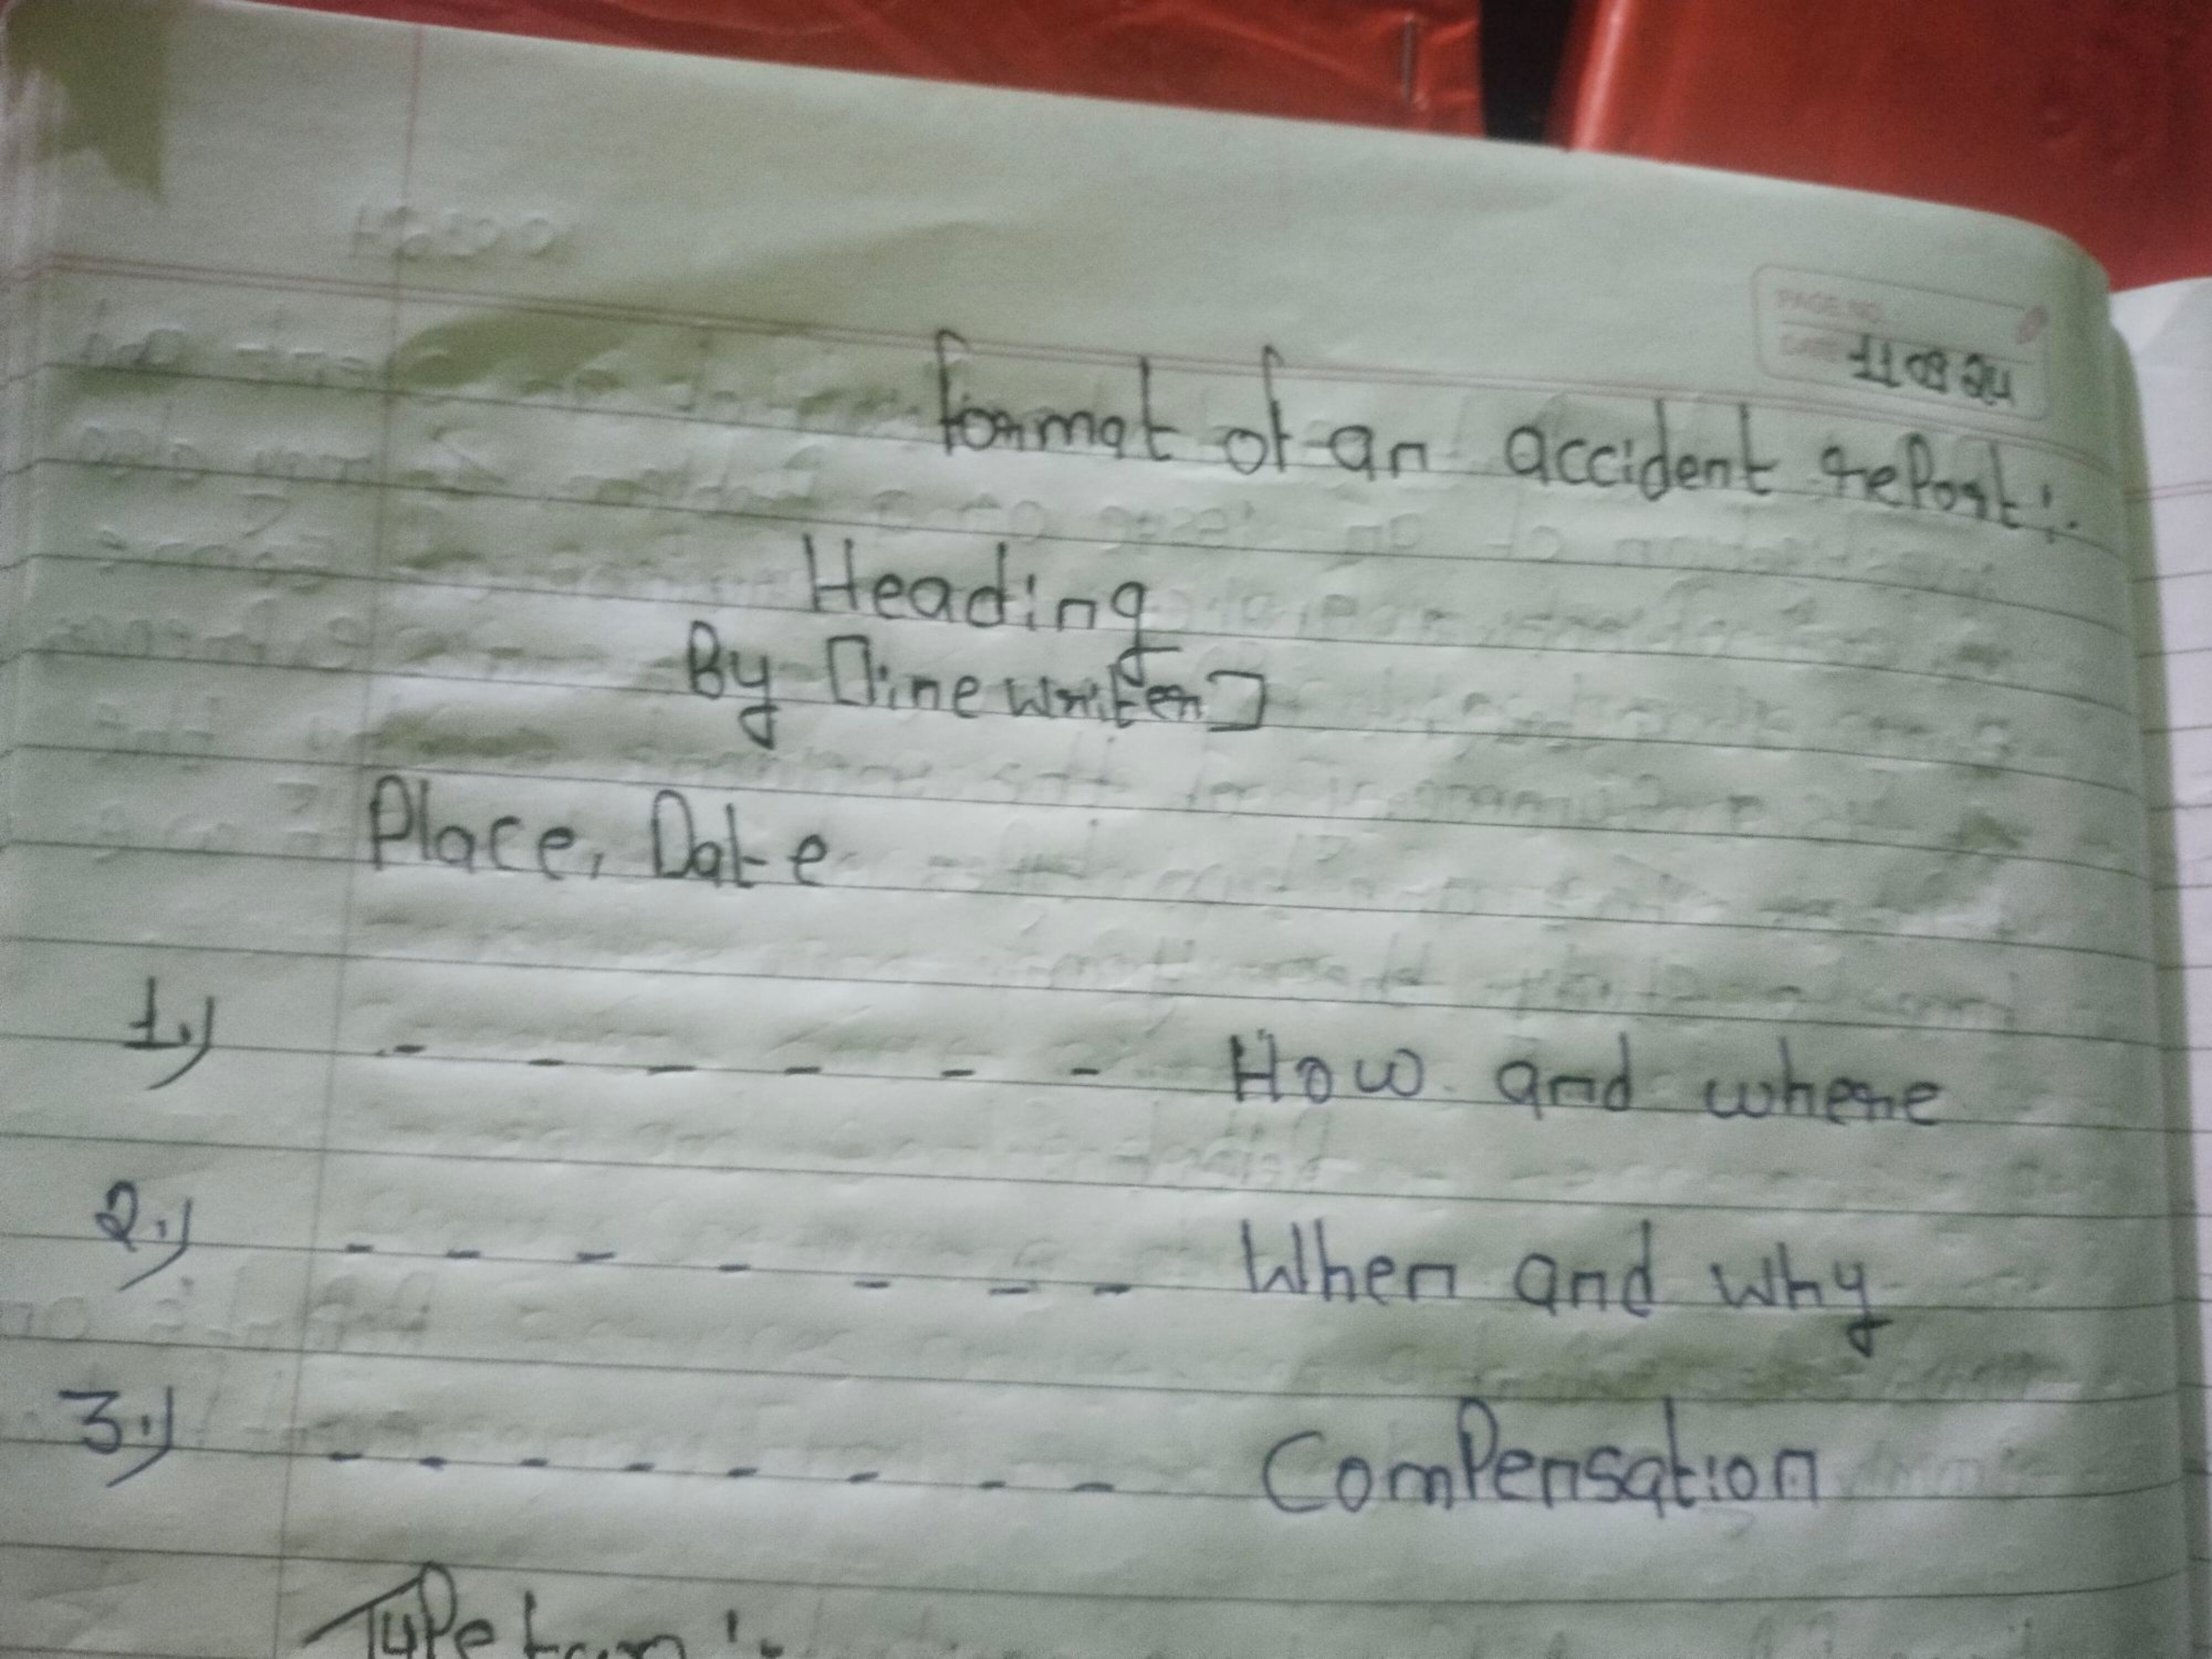 PAGE NO.
DATE 11 08 24
format of an accident report:-
Heading
By [inewriter]
Place, Date
1.) - - - - - - How and where
2.) - - - - - - - When and why
3.) - - - - - - - - Compensation